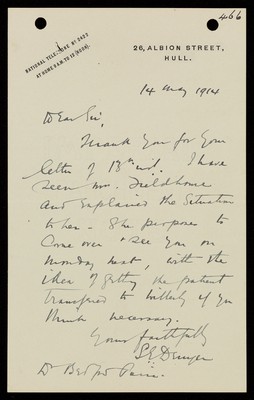 466
NATIONAL TELEPHONE No 2427
AT HOME 9 A.M. TO 10
26, ALBION STREET,
HULL.
14 May 1914
Dear Sir,
Thank you for your
letter of 13th inst. I have
seen Mrs. Fieldhouse
and explained the situation
to her - She proposes to
come over & see you on
Monday next, with the
idea of getting the patient
transferred to Willerby if you
think necessary.
Yours faithfully
Dr Bedford Pierce.